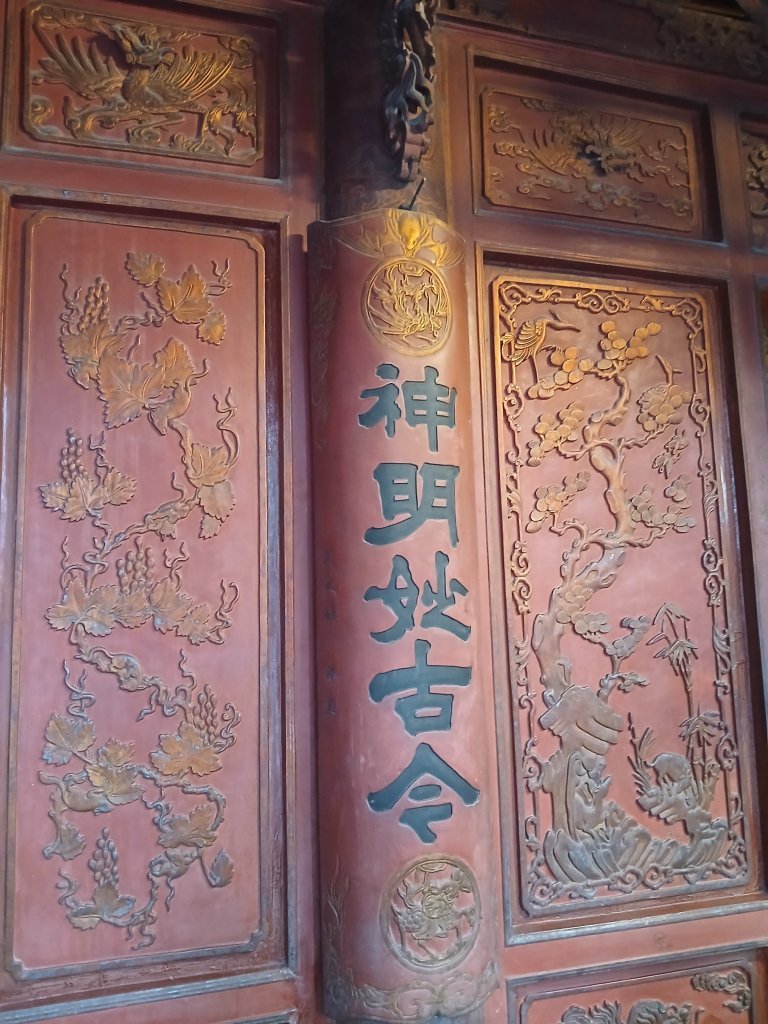 神明妙古令